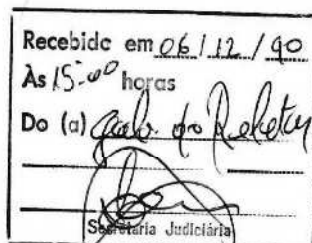 Recebido em 06/12/90
Às 15:00 horas
Do (a) Gab. do Relator
Secretaria Judiciária